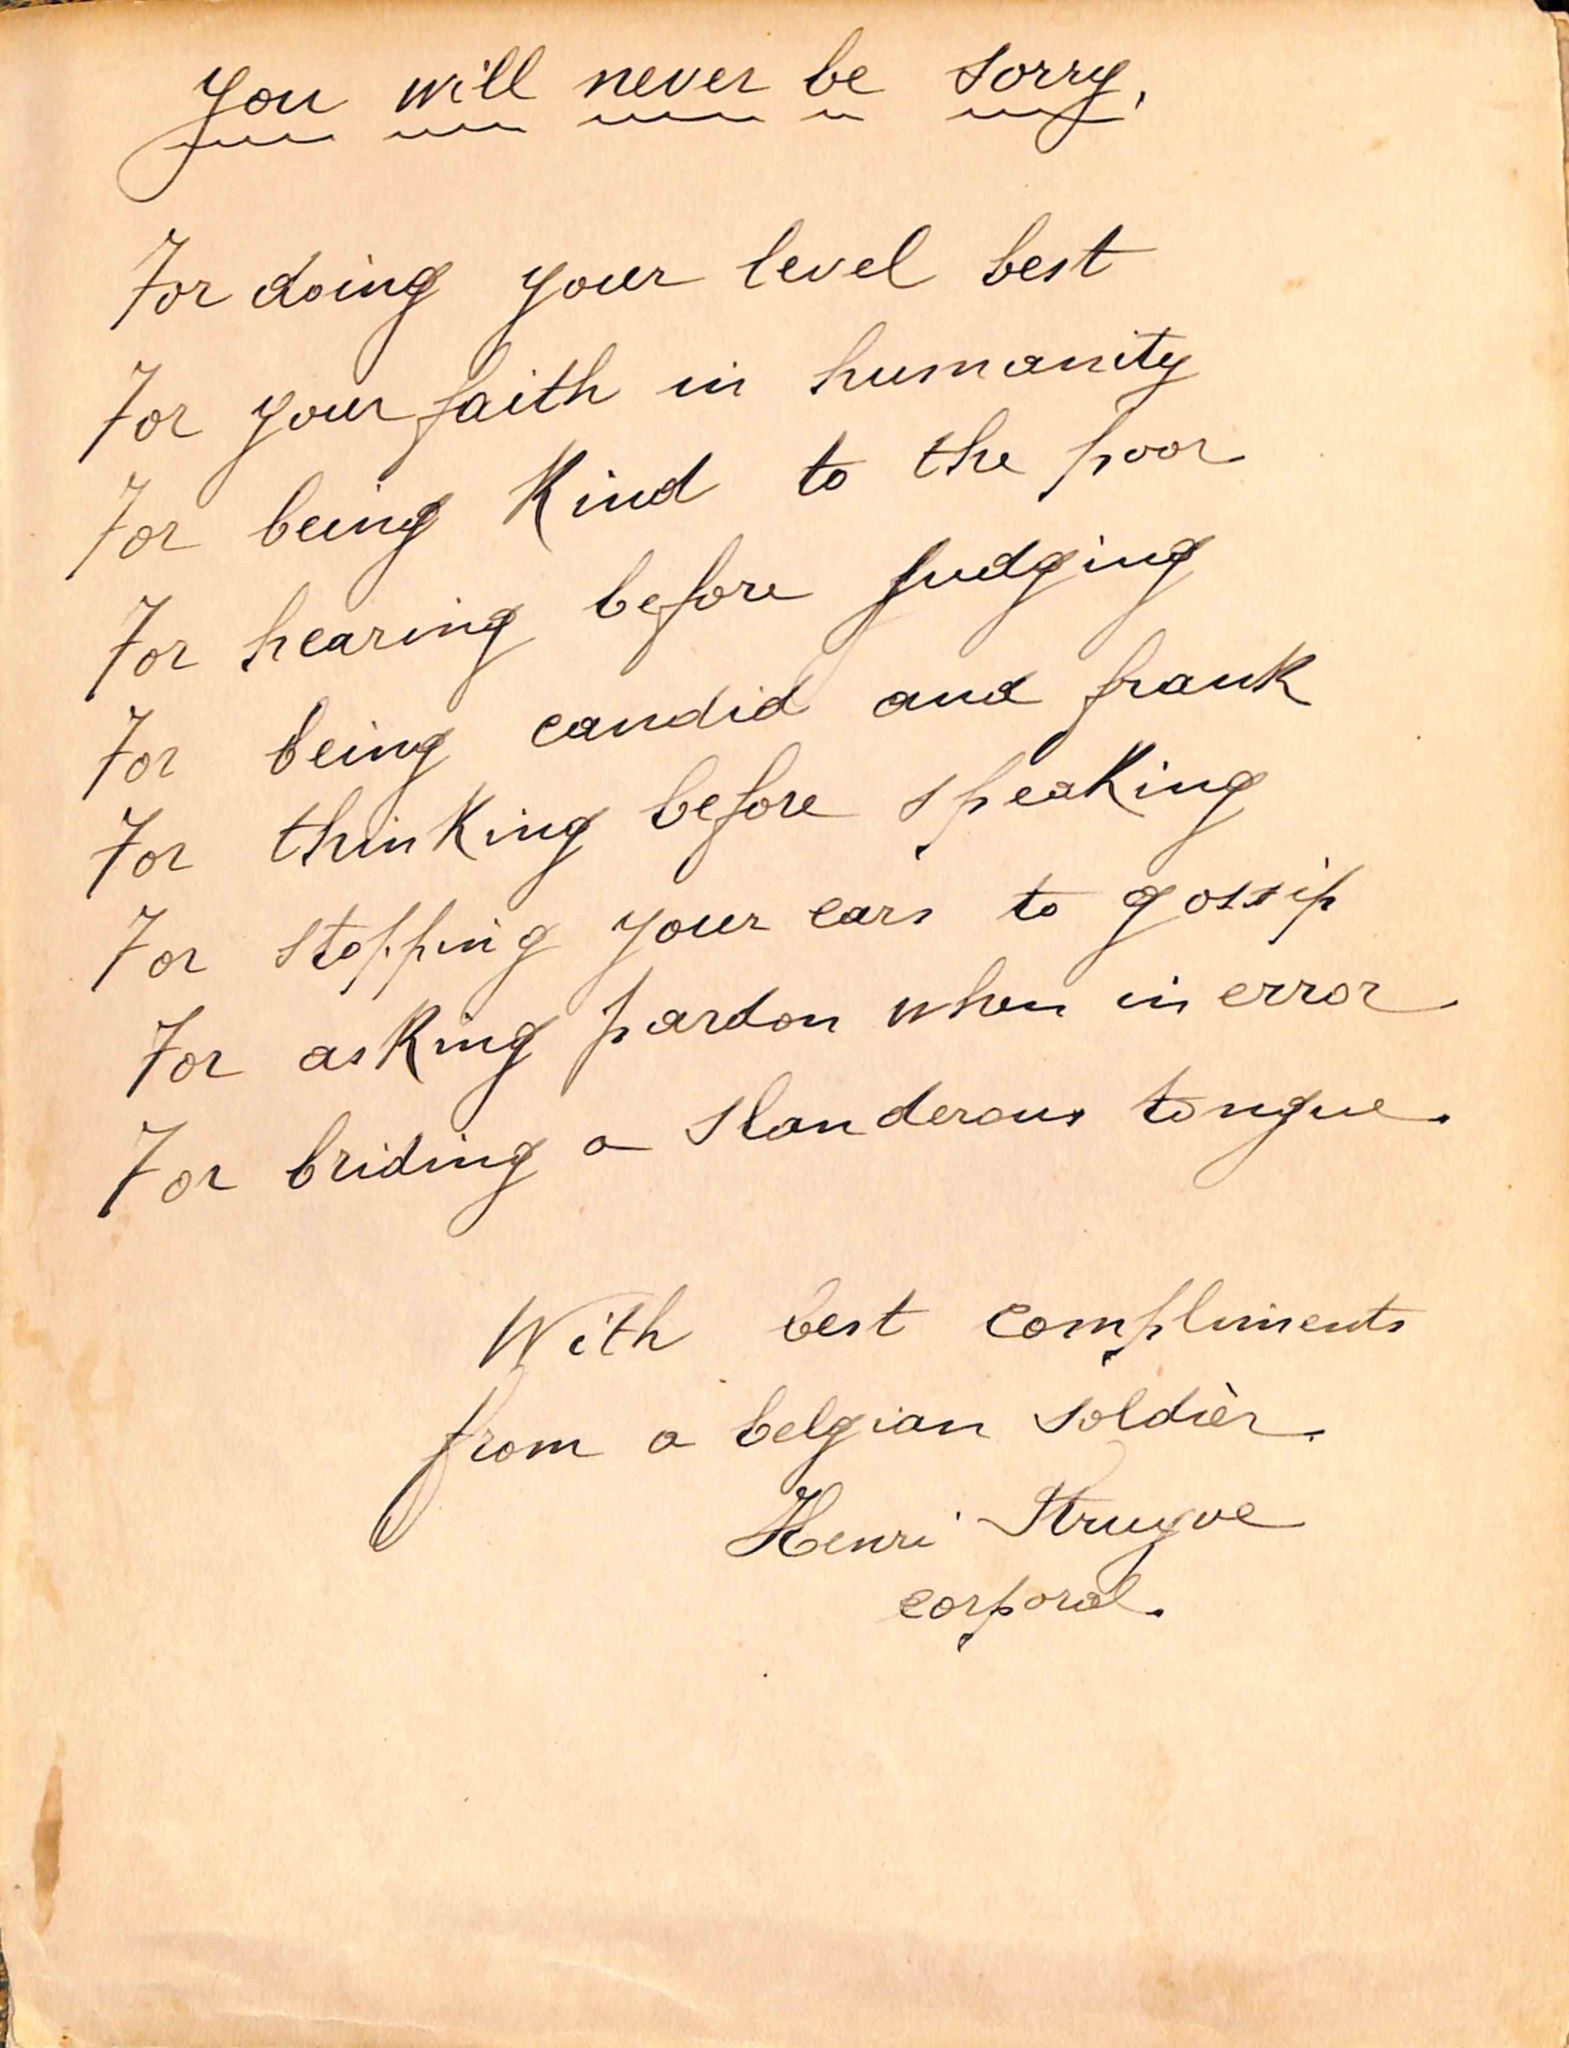 you will never be sorry,
For doing your level best
For your faith in humanity
For being Kind to the poor
For hearing before judging
For being candid and frank
For thinKing before speaKing
For stopping your ears to gossip
For asKing pardon when in error
For briding a slanderous tongue.
With best compliments
from a belgian soldièr.
Henri
corporal.